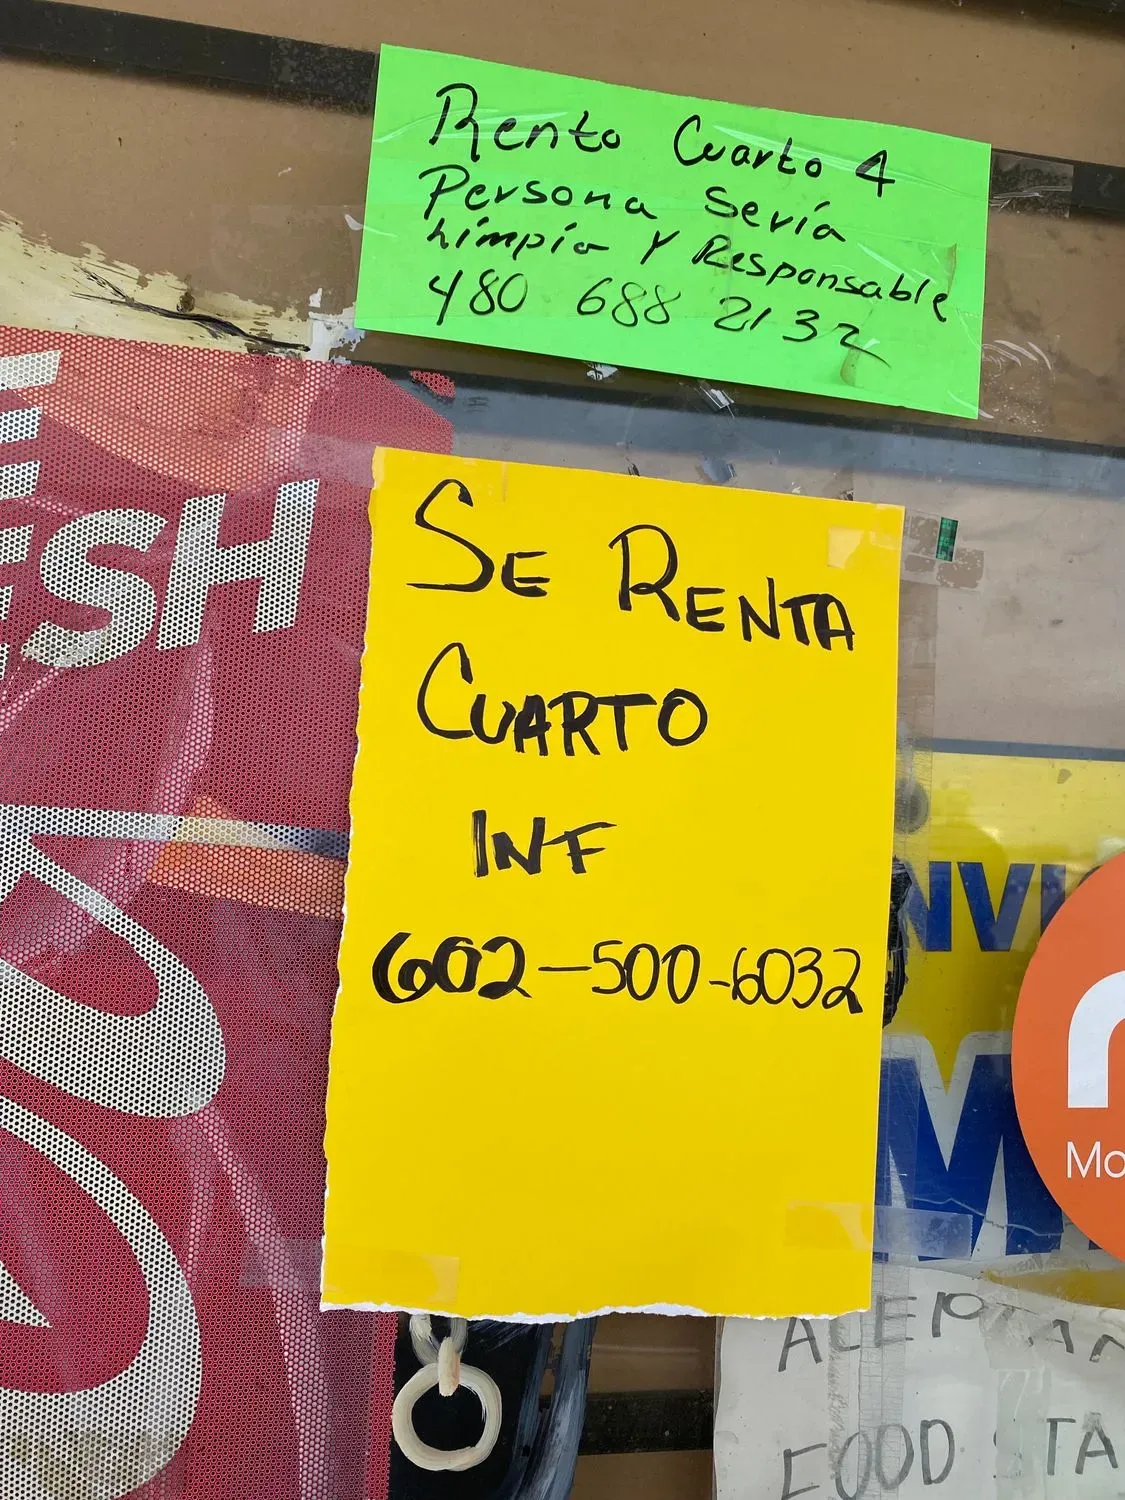 Rento Cuarto 4
Persona Sería
Limpia y Responsable
480 688 2132
ESH
SE RENTA
CUARTO
INF
602-500-6032
NVI
M
Mo
ACEPTAN
FOOD STA